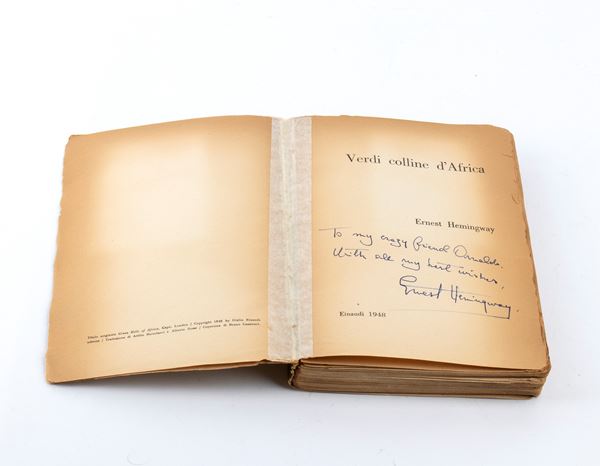 Titolo originale Green Hills of Africa, Cape, London / Copyright 1948 by Giulio Einaudi
editore / Traduzione di Attilio Bertolucci e Alberto Rossi / Copertina di
Verdi colline d'Africa
Ernest Hemingway
To my crazy friend Arnaldo.
With all my best wishes,
Ernest Hemingway.
Einaudi 1948